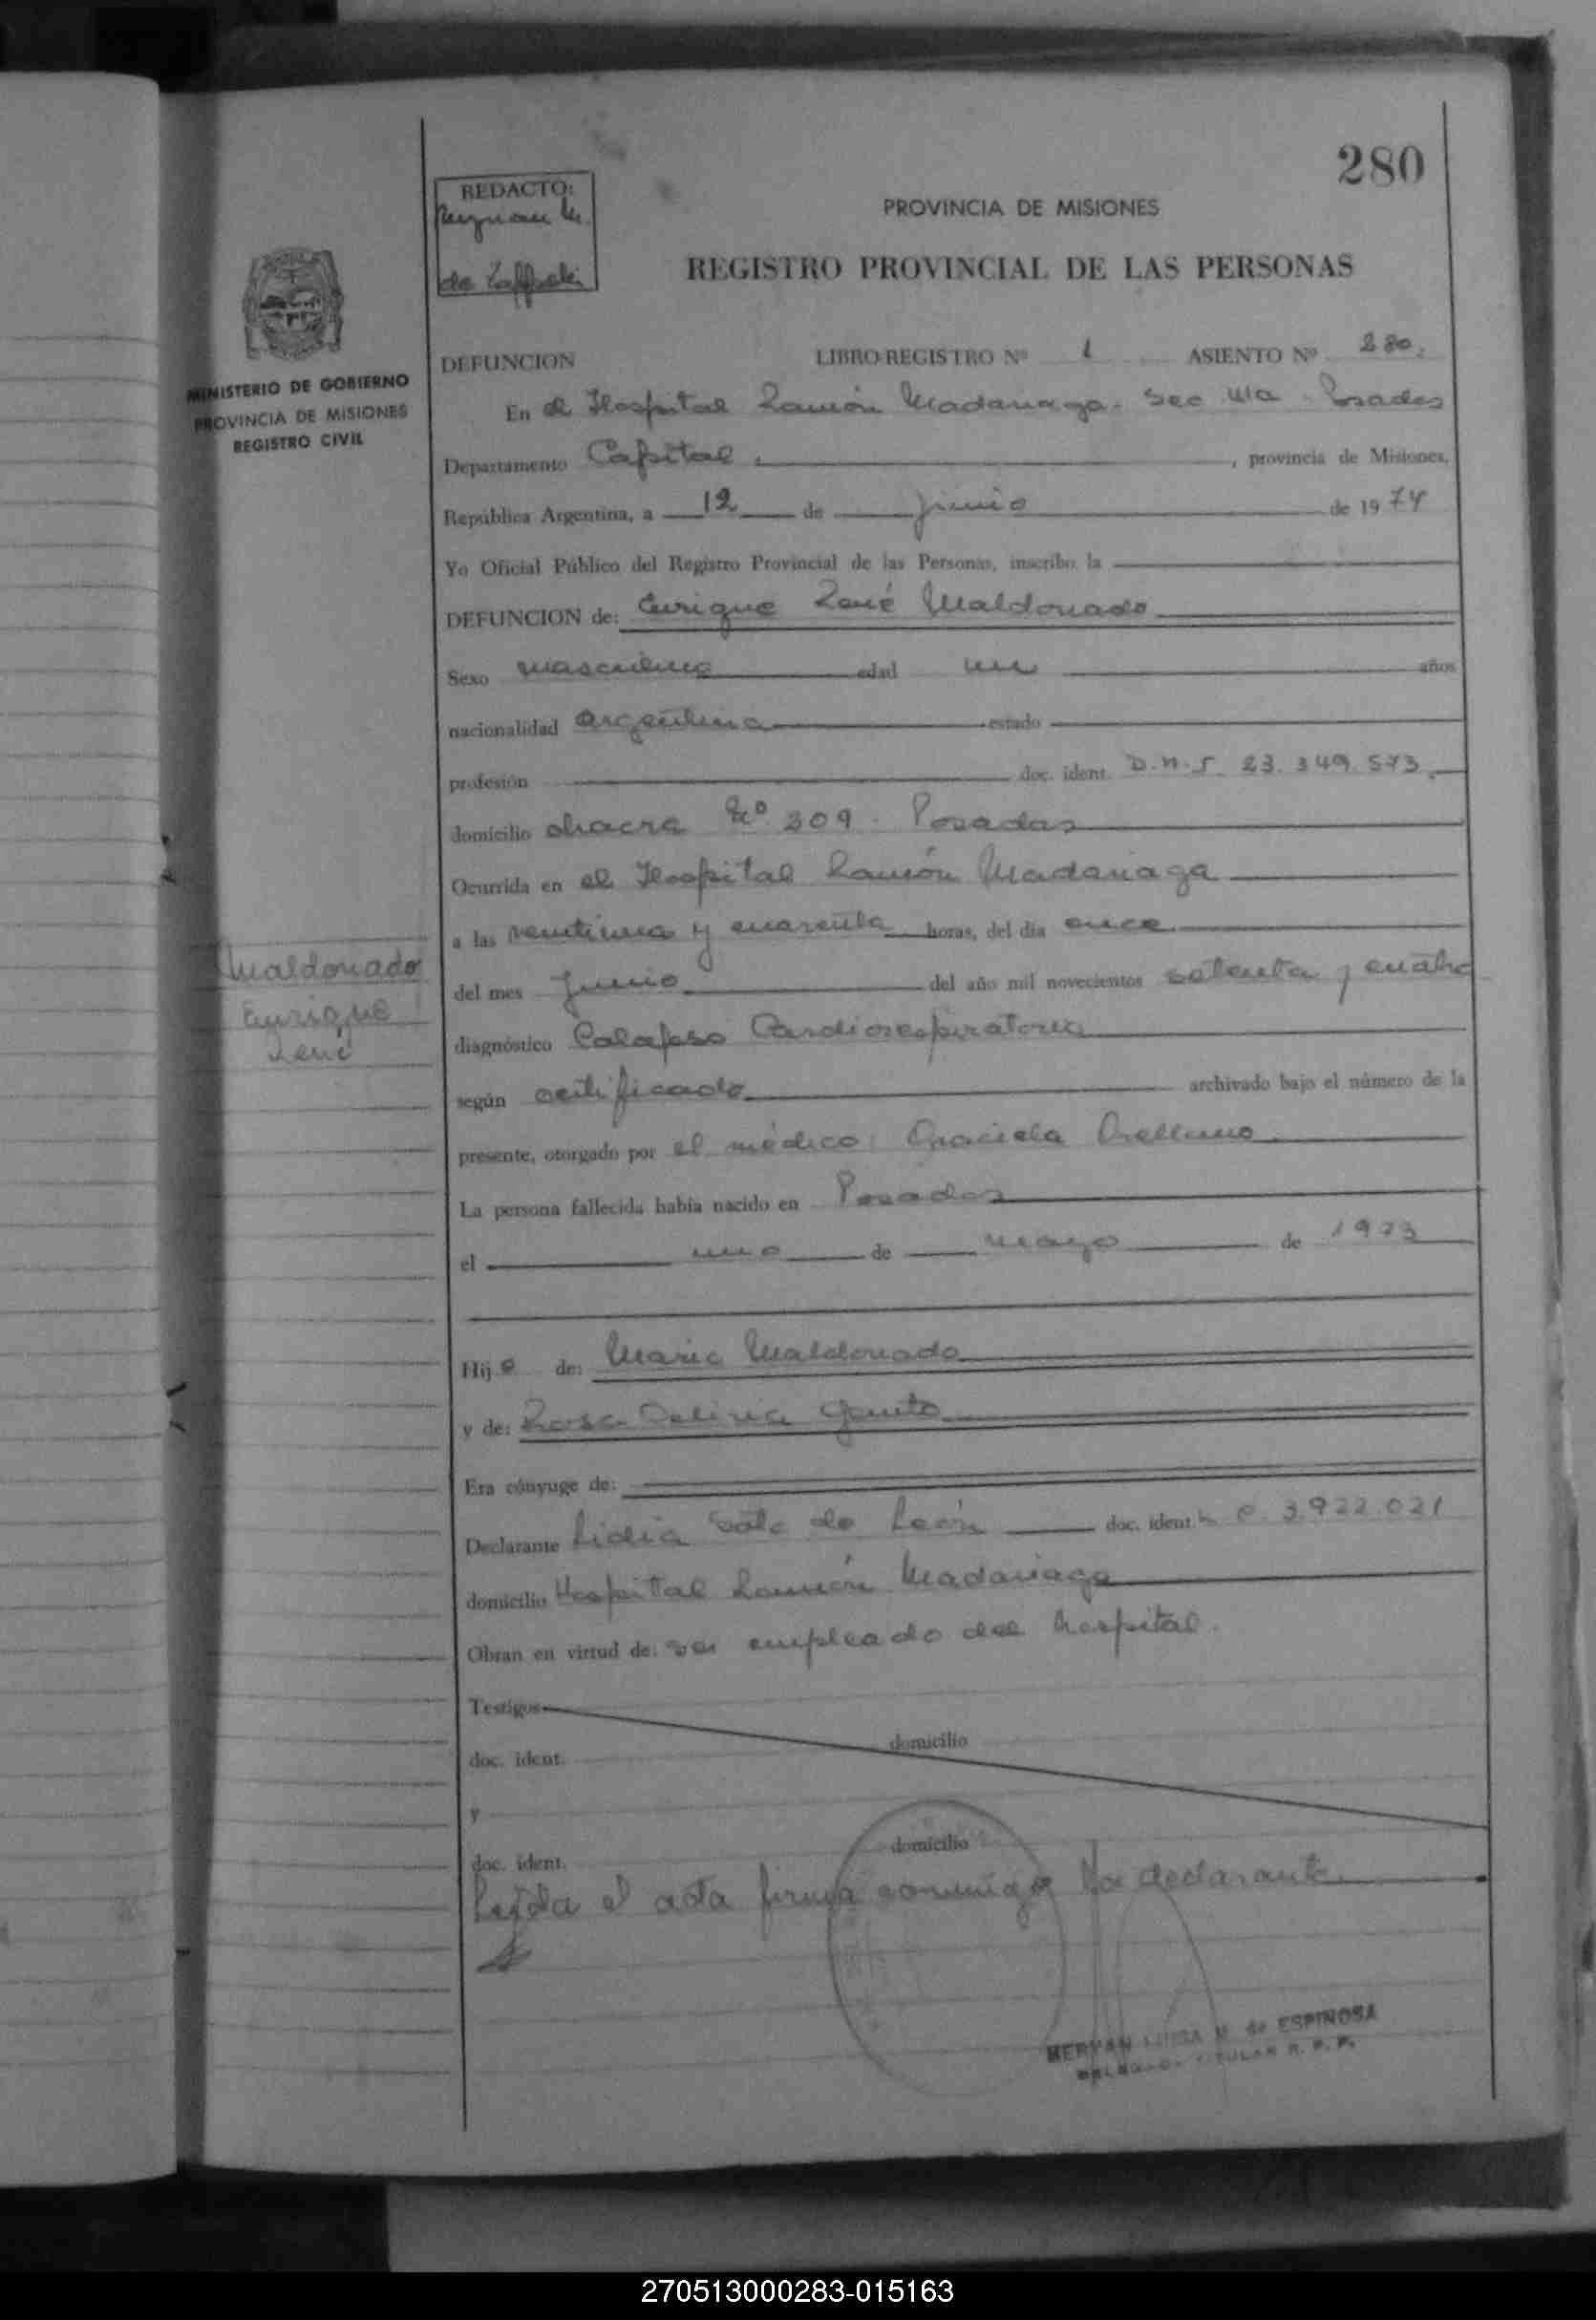 280
REDACTO:
de
PROVINCIA DE MISIONES
REGISTRO PROVINCIAL DE LAS PERSONAS
MINISTERIO DE GOBIERNO
PROVINCIA DE MISIONES
REGISTRO CIVIL
DEFUNCION LIBRO-REGISTRO Nº 1 ASIENTO Nº 280.
En el Hospital Ramón Madariaga. Sec Posadas
Departamento Capital, provincia de Misiones,
República Argentina, a 12 de junio de 1974
Yo Oficial Público del Registro Provincial de las Personas, inscribo la
DEFUNCION de: Enrique René Maldonado
Sexo masculino edad un años
nacionalidad argentina estado
profesión doc. ident. D.N.I. 23.349.573.
domicilio chacra Nº 309. Posadas
Ocurrida en el Hospital Ramón Madariaga
a las veintiuna y cuarenta horas, del día once
del mes junio del año mil novecientos setenta y cuatro
Maldonado
Enrique
René
diagnóstico Colapso Cardiorespiratorio
según certificado archivado bajo el número de la
presente, otorgado por el médico: Graciela Orellano
La persona fallecida había nacido en Posadas
el uno de mayo de 1973
Hijo de: Mario Maldonado
y de: Rosa
Era cónyuge de:
Declarante Lidia de León doc. ident. L C. 3.922.021
domicilio Hospital Ramón Madariaga
Obran en virtud de: ser empleado del hospital.
Testigos
doc. ident. domicilio
y
doc. ident. domicilio
Leída el acta firma conmigo la declarante
HERMAN LUISA M. de ESPINOSA
TITULAR R. P. P.
270513000283-015163